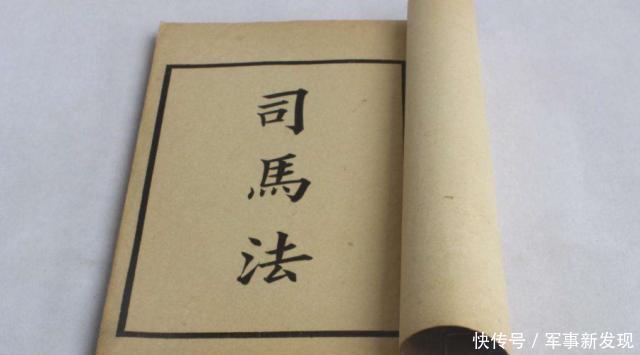 司馬法
快传号／军事新发现